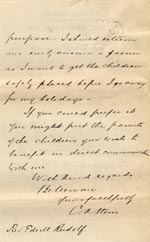 purpose - I should esteem
an early answer a favour
as I want to get the children
safely placed before I go away
for my holidays -
If you would prefer it
you might put the parents
of the children you wish to
benefit in direct communication
with me
With kind regards
Believe me
Yours faithfully
Revd Edwd Rudolf